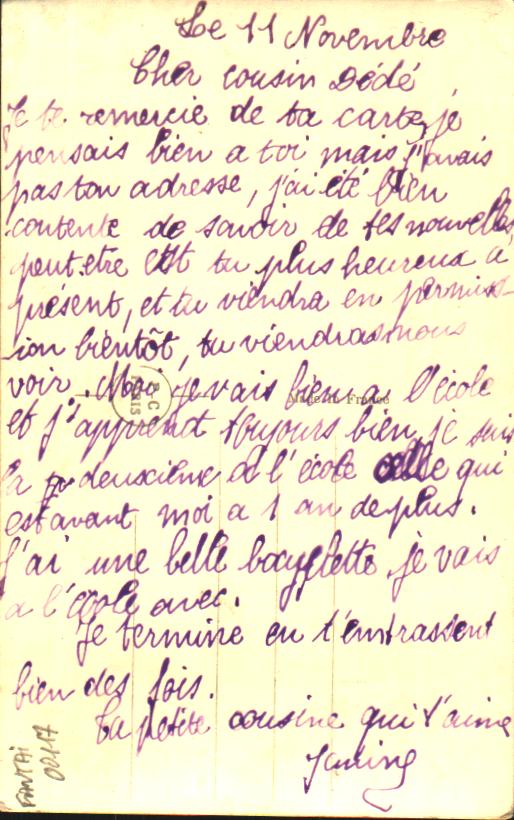 Le 11 Novembre
Cher cousin Dédé
Je te remercie de ta carte, je
pensais bien a toi mais j'avais
pas ton adresse, j'ai été bien
contente de savoir de tes nouvelles,
peut.etre est tu plus heureux a
présent, et tu viendra en permiss-
-ion bientôt, tu viendras nous
voir. Moi je vais bien a l'école
et j'apprend toujours bien, je suis
la deuxieme de l'école celle qui
est avant moi a 1 an de plus.
J'ai une belle bacyclette, je vais
a l'école avec.
Je termine en t'embrassent
bien des fois.
Ta petite cousine qui t'aime
Janine
Made in France
P.C
PARIS
FANTAI
0217